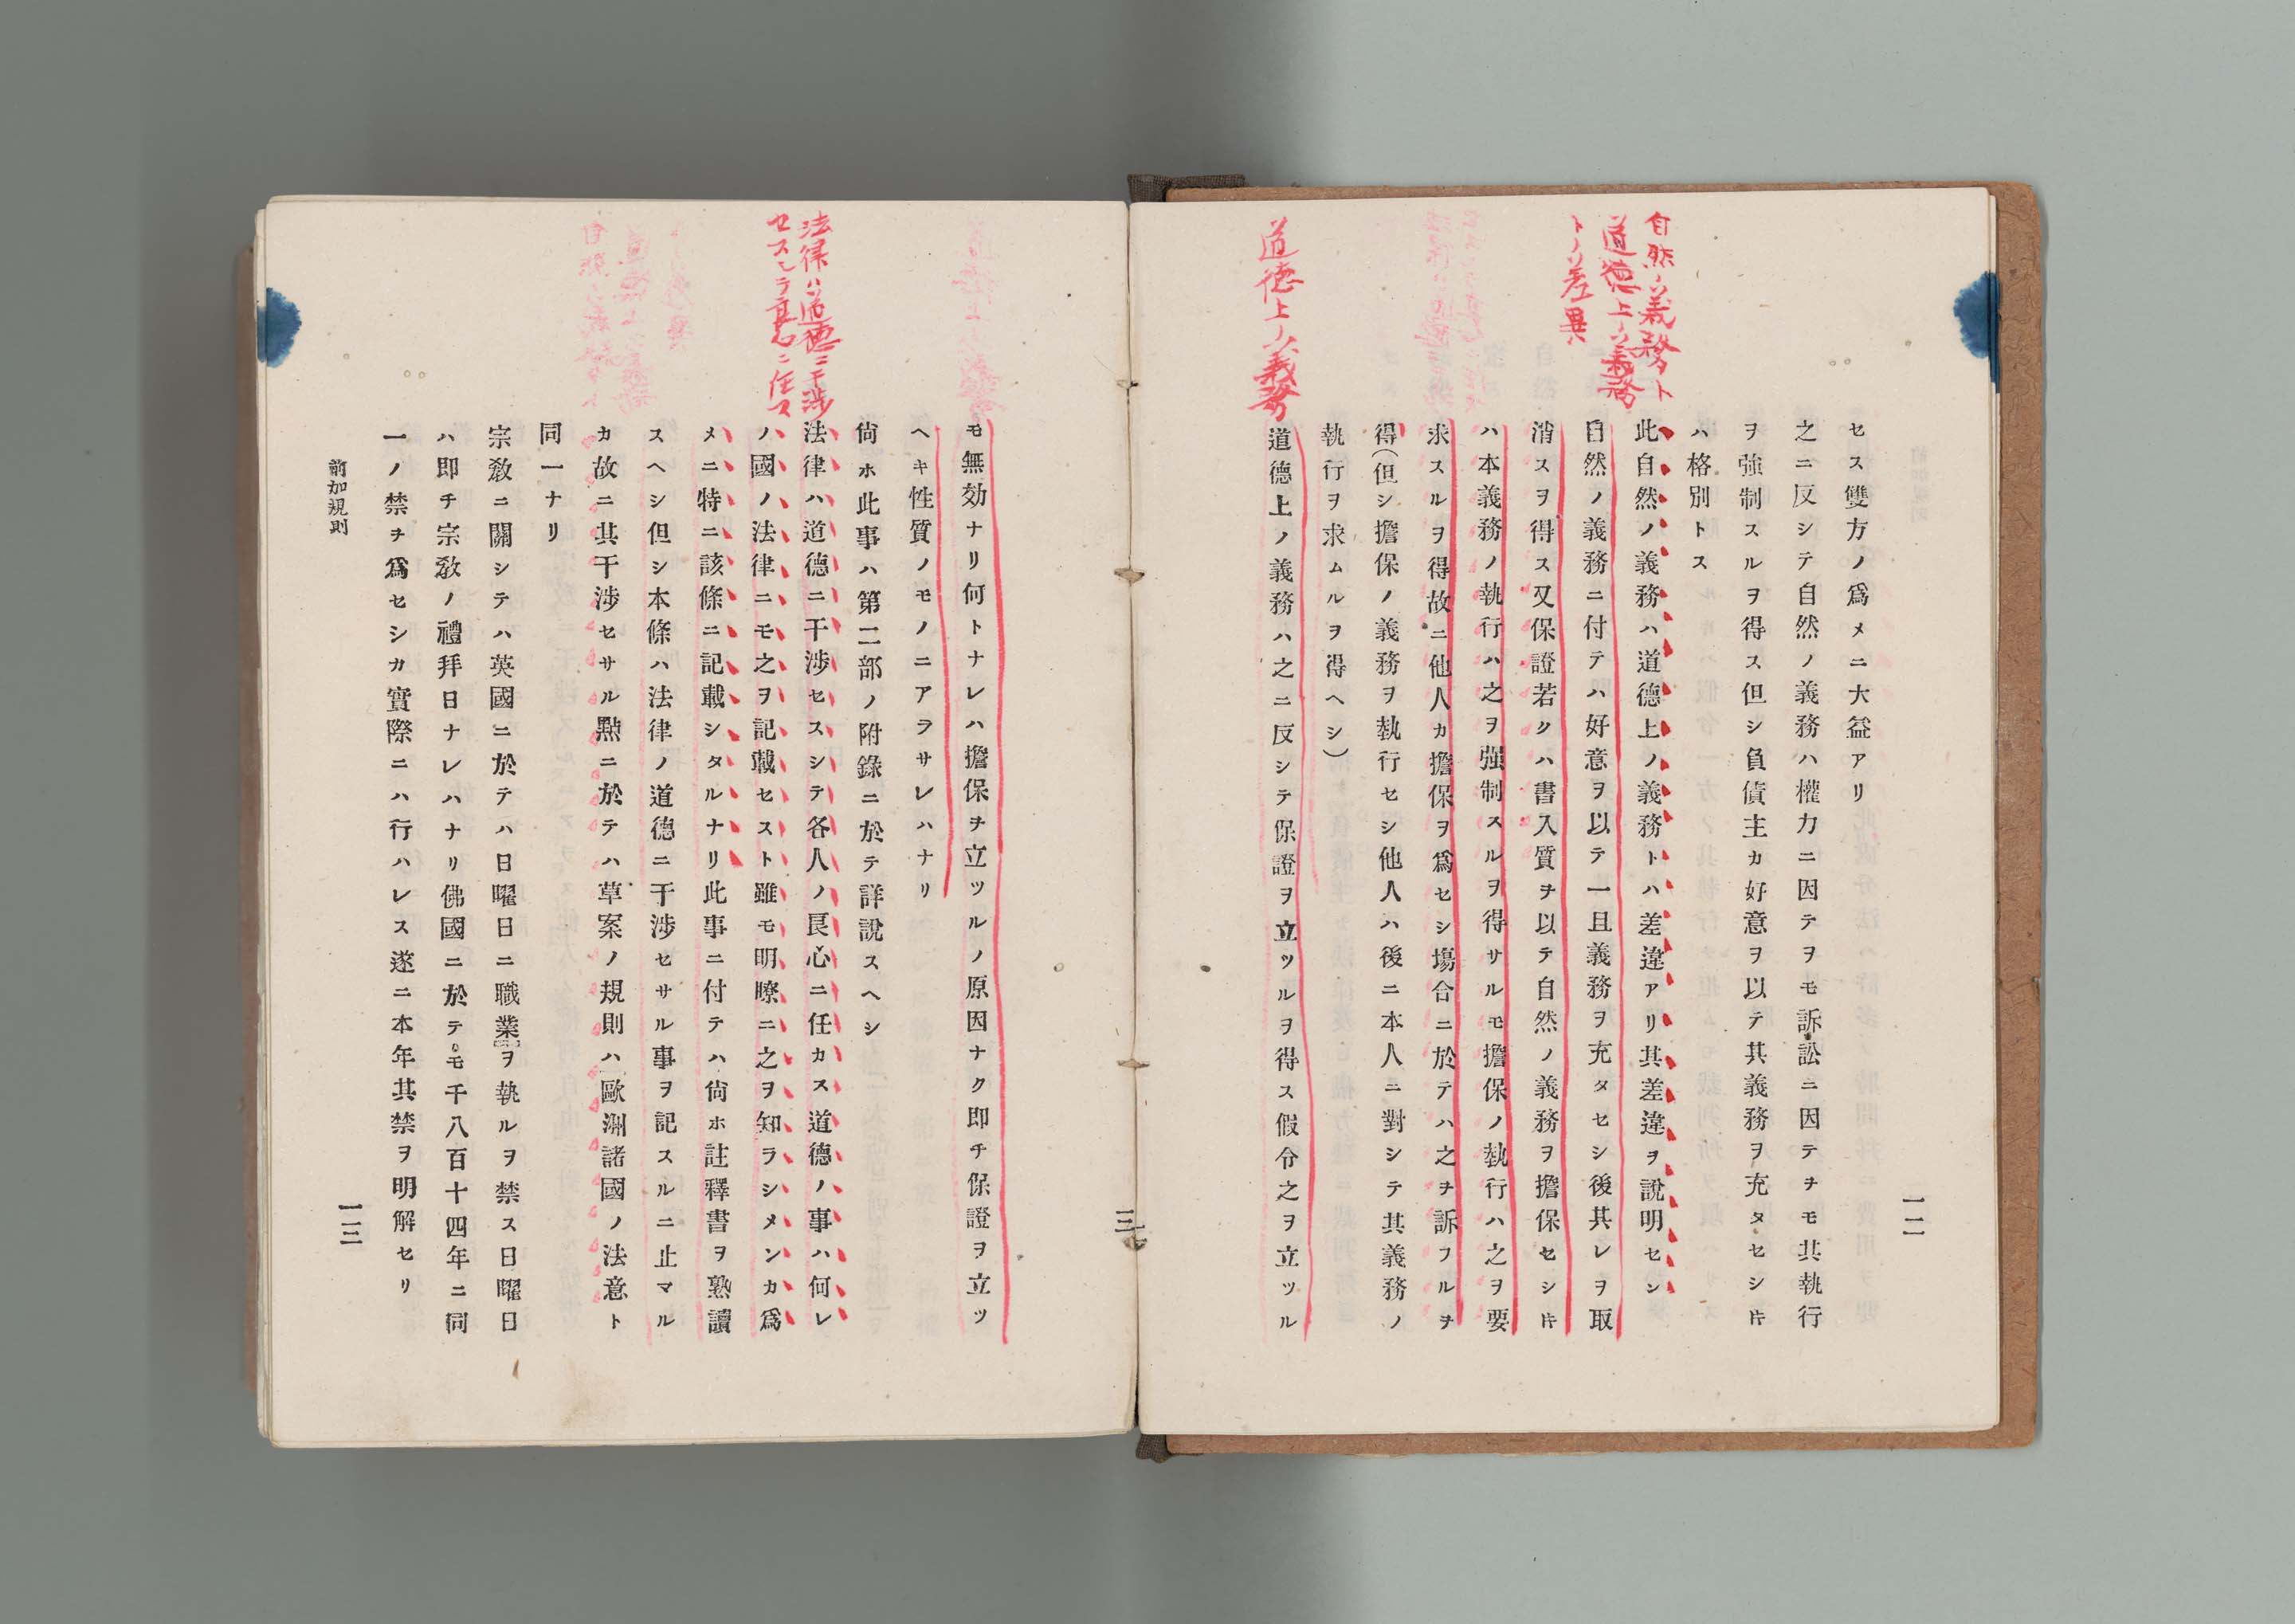 自然ノ義務ト
道徳上ノ義務
トノ差異
道徳上ノ義務
セス雙方ノ爲メニ大益アリ
之ニ反シテ自然ノ義務ハ權力ニ因テヲモ訴訟ニ因テヲモ其執行
ヲ強制スルヲ得ス但シ負債主カ好意ヲ以テ其義務ヲ充タセシ𪜈
ハ格別トス
此自然ノ義務ハ道德上ノ義務トハ差違アリ其差違ヲ說明セン
自然ノ義務ニ付テハ好意ヲ以テ一且義務ヲ充タセシ後其レヲ取
消スヲ得ス又保證若クハ書入質ヲ以テ自然ノ義務ヲ擔保セシ𪜈
ハ本義務ノ執行ハ之ヲ强制スルヲ得サルモ擔保ノ執行ハ之ヲ要
求スルヲ得故ニ他人カ擔保ヲ爲セシ塲合ニ於テハ之ヲ訴フルヲ
得(但シ擔保ノ義務ヲ執行セシ他人ハ後ニ本人ニ對シテ其義務ノ
執行ヲ求ムルヲ得ヘシ)
道德上ノ義務ハ之ニ反シテ保證ヲ立ツルヲ得ス假令之ヲ立ツル
一二
法律ハ道徳ニ干渉
セスシテ良心ニ任ス
モ無効ナリ何トナレハ擔保ヲ立ツルノ原因ナク即チ保證ヲ立ツ
ヘキ性質ノモノニアラサレハナリ
尙ホ此事ハ第二部ノ附錄ニ於テ詳說スヘシ
法律ハ道德ニ干涉セスシテ各人ノ良心ニ任カス道德ノ事ハ何レ
ノ國ノ法律ニモ之ヲ記載セスト雖モ明瞭ニ之ヲ知ラシメンカ爲
メニ特ニ該條ニ記載シタルナリ此事ニ付テハ尙ホ註釋書ヲ熟讀
スヘシ但シ本條ハ法律ノ道德ニ干涉セサル事ヲ記スルニ止マル
カ故ニ其干涉セサル點ニ於テハ草案ノ規則ハ歐洲諸國ノ法意ト
同一ナリ
宗敎ニ關シテハ英國ニ於テハ日曜日ニ職業ヲ執ルヲ禁ス日曜日
ハ即チ宗敎ノ禮拜日ナレハナリ佛國ニ於テモ千八百十四年ニ同
一ノ禁ヲ爲セシカ實際ニハ行ハレス遂ニ本年其禁ヲ明解セリ
前加規則
一三